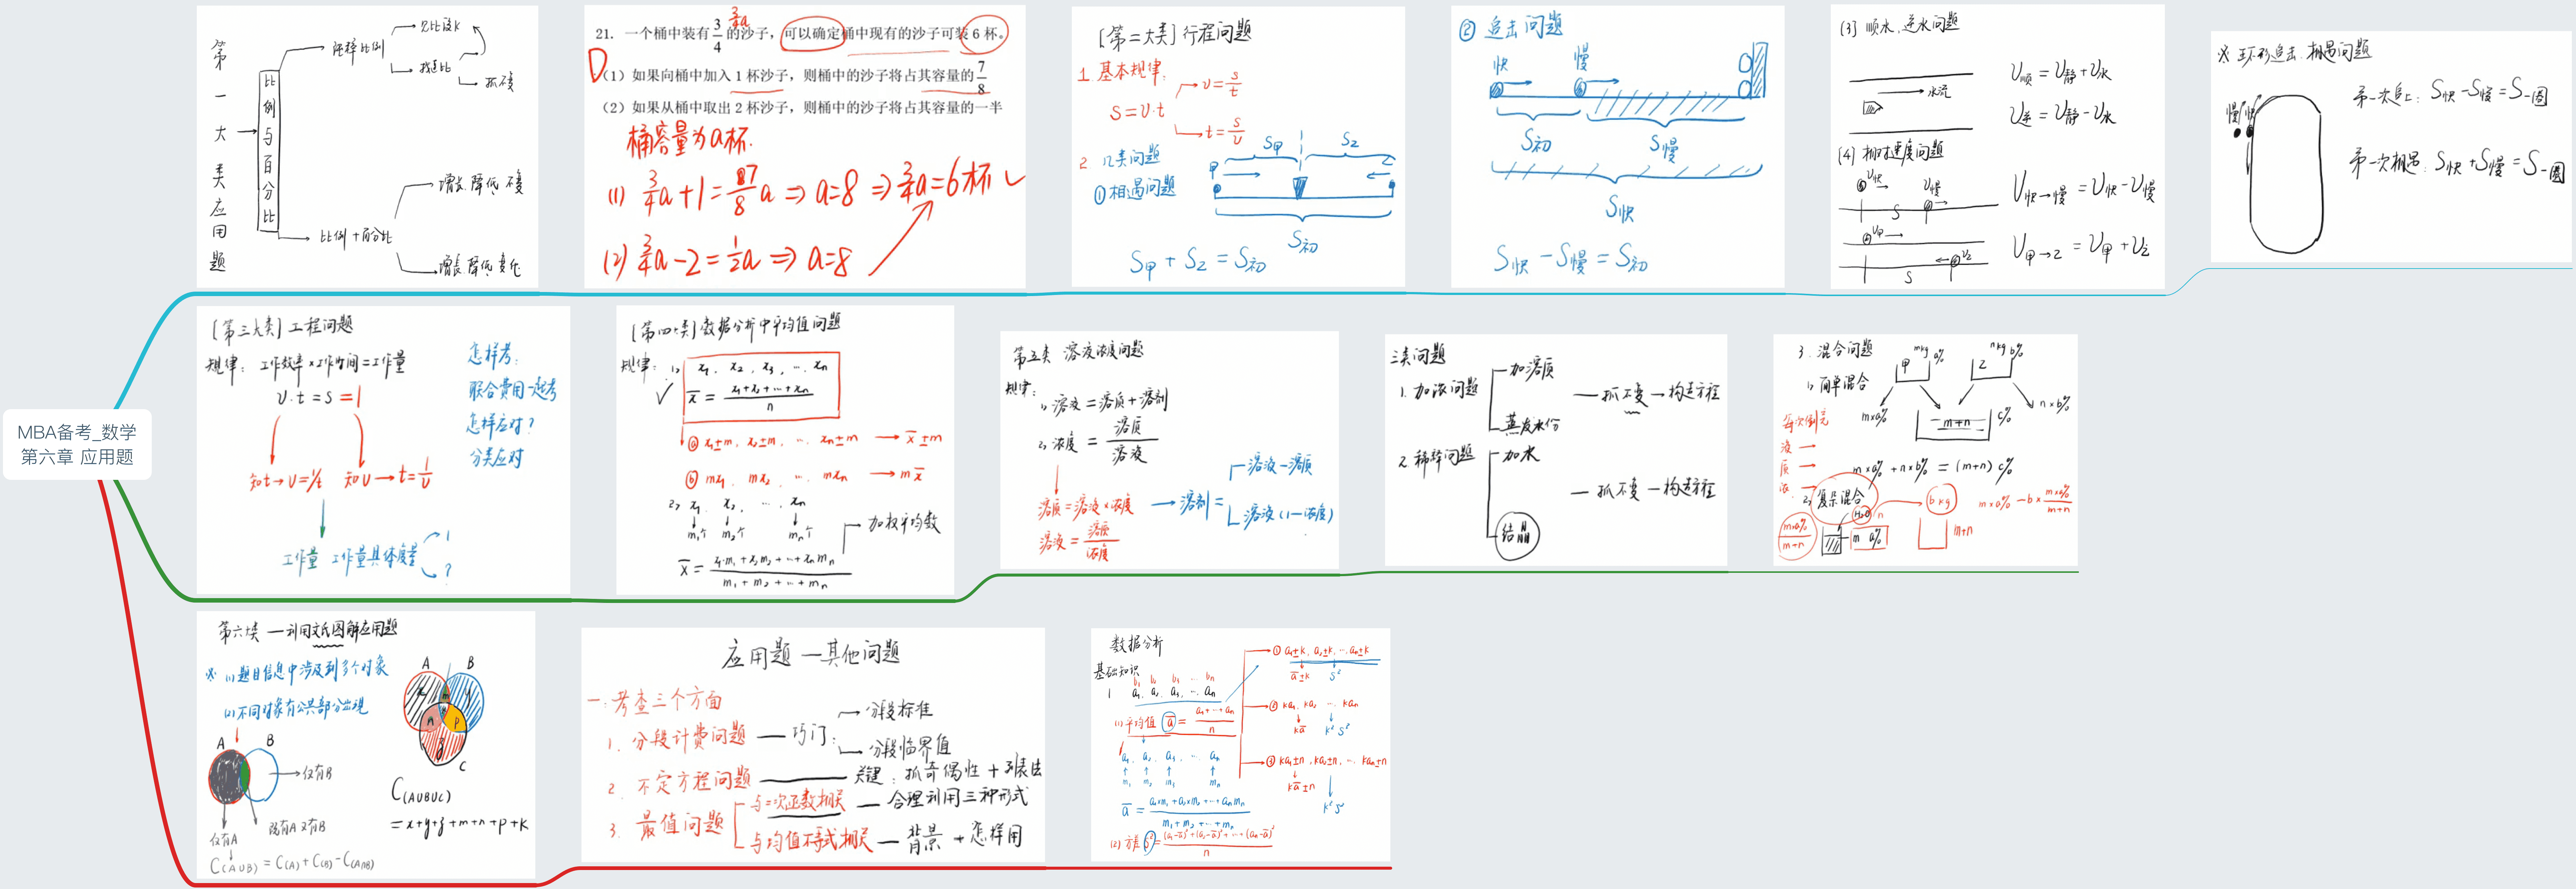 MBA备考_数学
第六章 应用题
第一大类应用题
比例与百分比
纯粹比例
见比设k
找连比
抓不变
比例+百分比
增长.降低.不变
增长.降低.变化
21. 一个桶中装有3/4的沙子，可以确定桶中现有的沙子可装 6 杯。
3/4a
D
（1）如果向桶中加入 1 杯沙子，则桶中的沙子将占其容量的7/8
（2）如果从桶中取出 2 杯沙子，则桶中的沙子将占其容量的一半
桶容量为a杯.
(1) 3/4a+1=7/8a ⇒ a=8 ⇒ 3/4a=6杯 ✓
(2) 3/4a-2=1/2a ⇒ a=8
[第二大类] 行程问题
1. 基本规律:
S=v·t
v=s/t
t=s/v
2 几类问题
①相遇问题
甲
S甲
S乙
S初
S甲 + S乙 = S初
② 追击问题
快
慢
S初
S慢
S快
S快 - S慢 = S初
(3) 顺水.逆水问题
水流
V顺 = V静+V水
V逆 = V静-V水
(4) 相对速度问题
V快
V慢
S
V快→慢 = V快-V慢
V甲
V乙
S
V甲→乙 = V甲+V乙
※ 环形追击.相遇问题
慢 快
第一次追上: S快-S慢=S一圈
第一次相遇: S快+S慢=S一圈
[第三大类] 工程问题
规律: 工作效率×工作时间=工作量
v·t=s=1
知t→v=1/t 知v→t=1/v
工作量 工作量具体度量
1
?
怎样考:
联合费用一起考
怎样应对?
分类应对
[第四大类] 数据分析中平均值问题
规律: 1)
✓
x₁, x₂, x₃, … xₙ
x̄=(x₁+x₂+…+xₙ)/n
ⓐ x₁±m, x₂±m, … xₙ±m → x̄±m
ⓑ mx₁, mx₂, … mxₙ → mx̄
2) x₁, x₂, … xₙ
m₁个 m₂个 mₙ个
加权平均数
x̄=(x₁m₁+x₂m₂+…+xₙmₙ)/(m₁+m₂+…+mₙ)
第五类 溶液浓度问题
规律:
1) 溶液=溶质+溶剂
2) 浓度=溶质/溶液
溶质=溶液×浓度
溶液=溶质/浓度
溶剂=
溶液-溶质
溶液(1-浓度)
三类问题
1. 加浓问题
加溶质
蒸发水份
抓不变→构造方程
2. 稀释问题
加水
结晶
抓不变→构造方程
3. 混合问题
1) 简单混合
甲 mkg a%
乙 nkg b%
m×a%
m+n
c%
n×b%
每次倒完
液→
质→
浓→
m×a%+n×b%=(m+n)c%
2) 复杂混合
H₂O
n
bkg
m×a%-b×m×a%/(m+n)
m×a%/(m+n)
m a%
m+n
第六类 — 利用文氏图解应用题
※ (1)题目信息中涉及到多个对象
(2)不同对象有公共部分出现
A B
仅有B
仅有A
既有A又有B
C(A∪B)=C(A)+C(B)-C(A∩B)
A B
C
x m y
n k p
z
C(A∪B∪C)
=x+y+z+m+n+p+k
应用题 — 其他问题
一. 考查三个方面
1. 分段计费问题 — 巧门:
分段标准
分段临界值
2. 不定方程问题 — 关键: 抓奇偶性+列表法
3. 最值问题
与二次函数相关 — 合理利用三种形式
与均值不等式相关 — 背景+怎样用
数据分析
基础知识
b₁ b₂ b₃ … bₙ
1 a₁, a₂, a₃, … aₙ
(1)平均值 ā=(a₁+…+aₙ)/n
a₁, a₂, a₃, … aₙ
m₁ m₂ m₃ mₙ
ā=(a₁m₁+a₂m₂+…+aₙmₙ)/(m₁+m₂+…+mₙ)
(2) 方差 S²=((a₁-ā)²+(a₂-ā)²+…+(aₙ-ā)²)/n
① a₁±k, a₂±k, … aₙ±k
ā±k S²
② ka₁, ka₂ … kaₙ
kā k²S²
③ ka₁±n, ka₂±n, … kaₙ±n
kā±n
k²S²